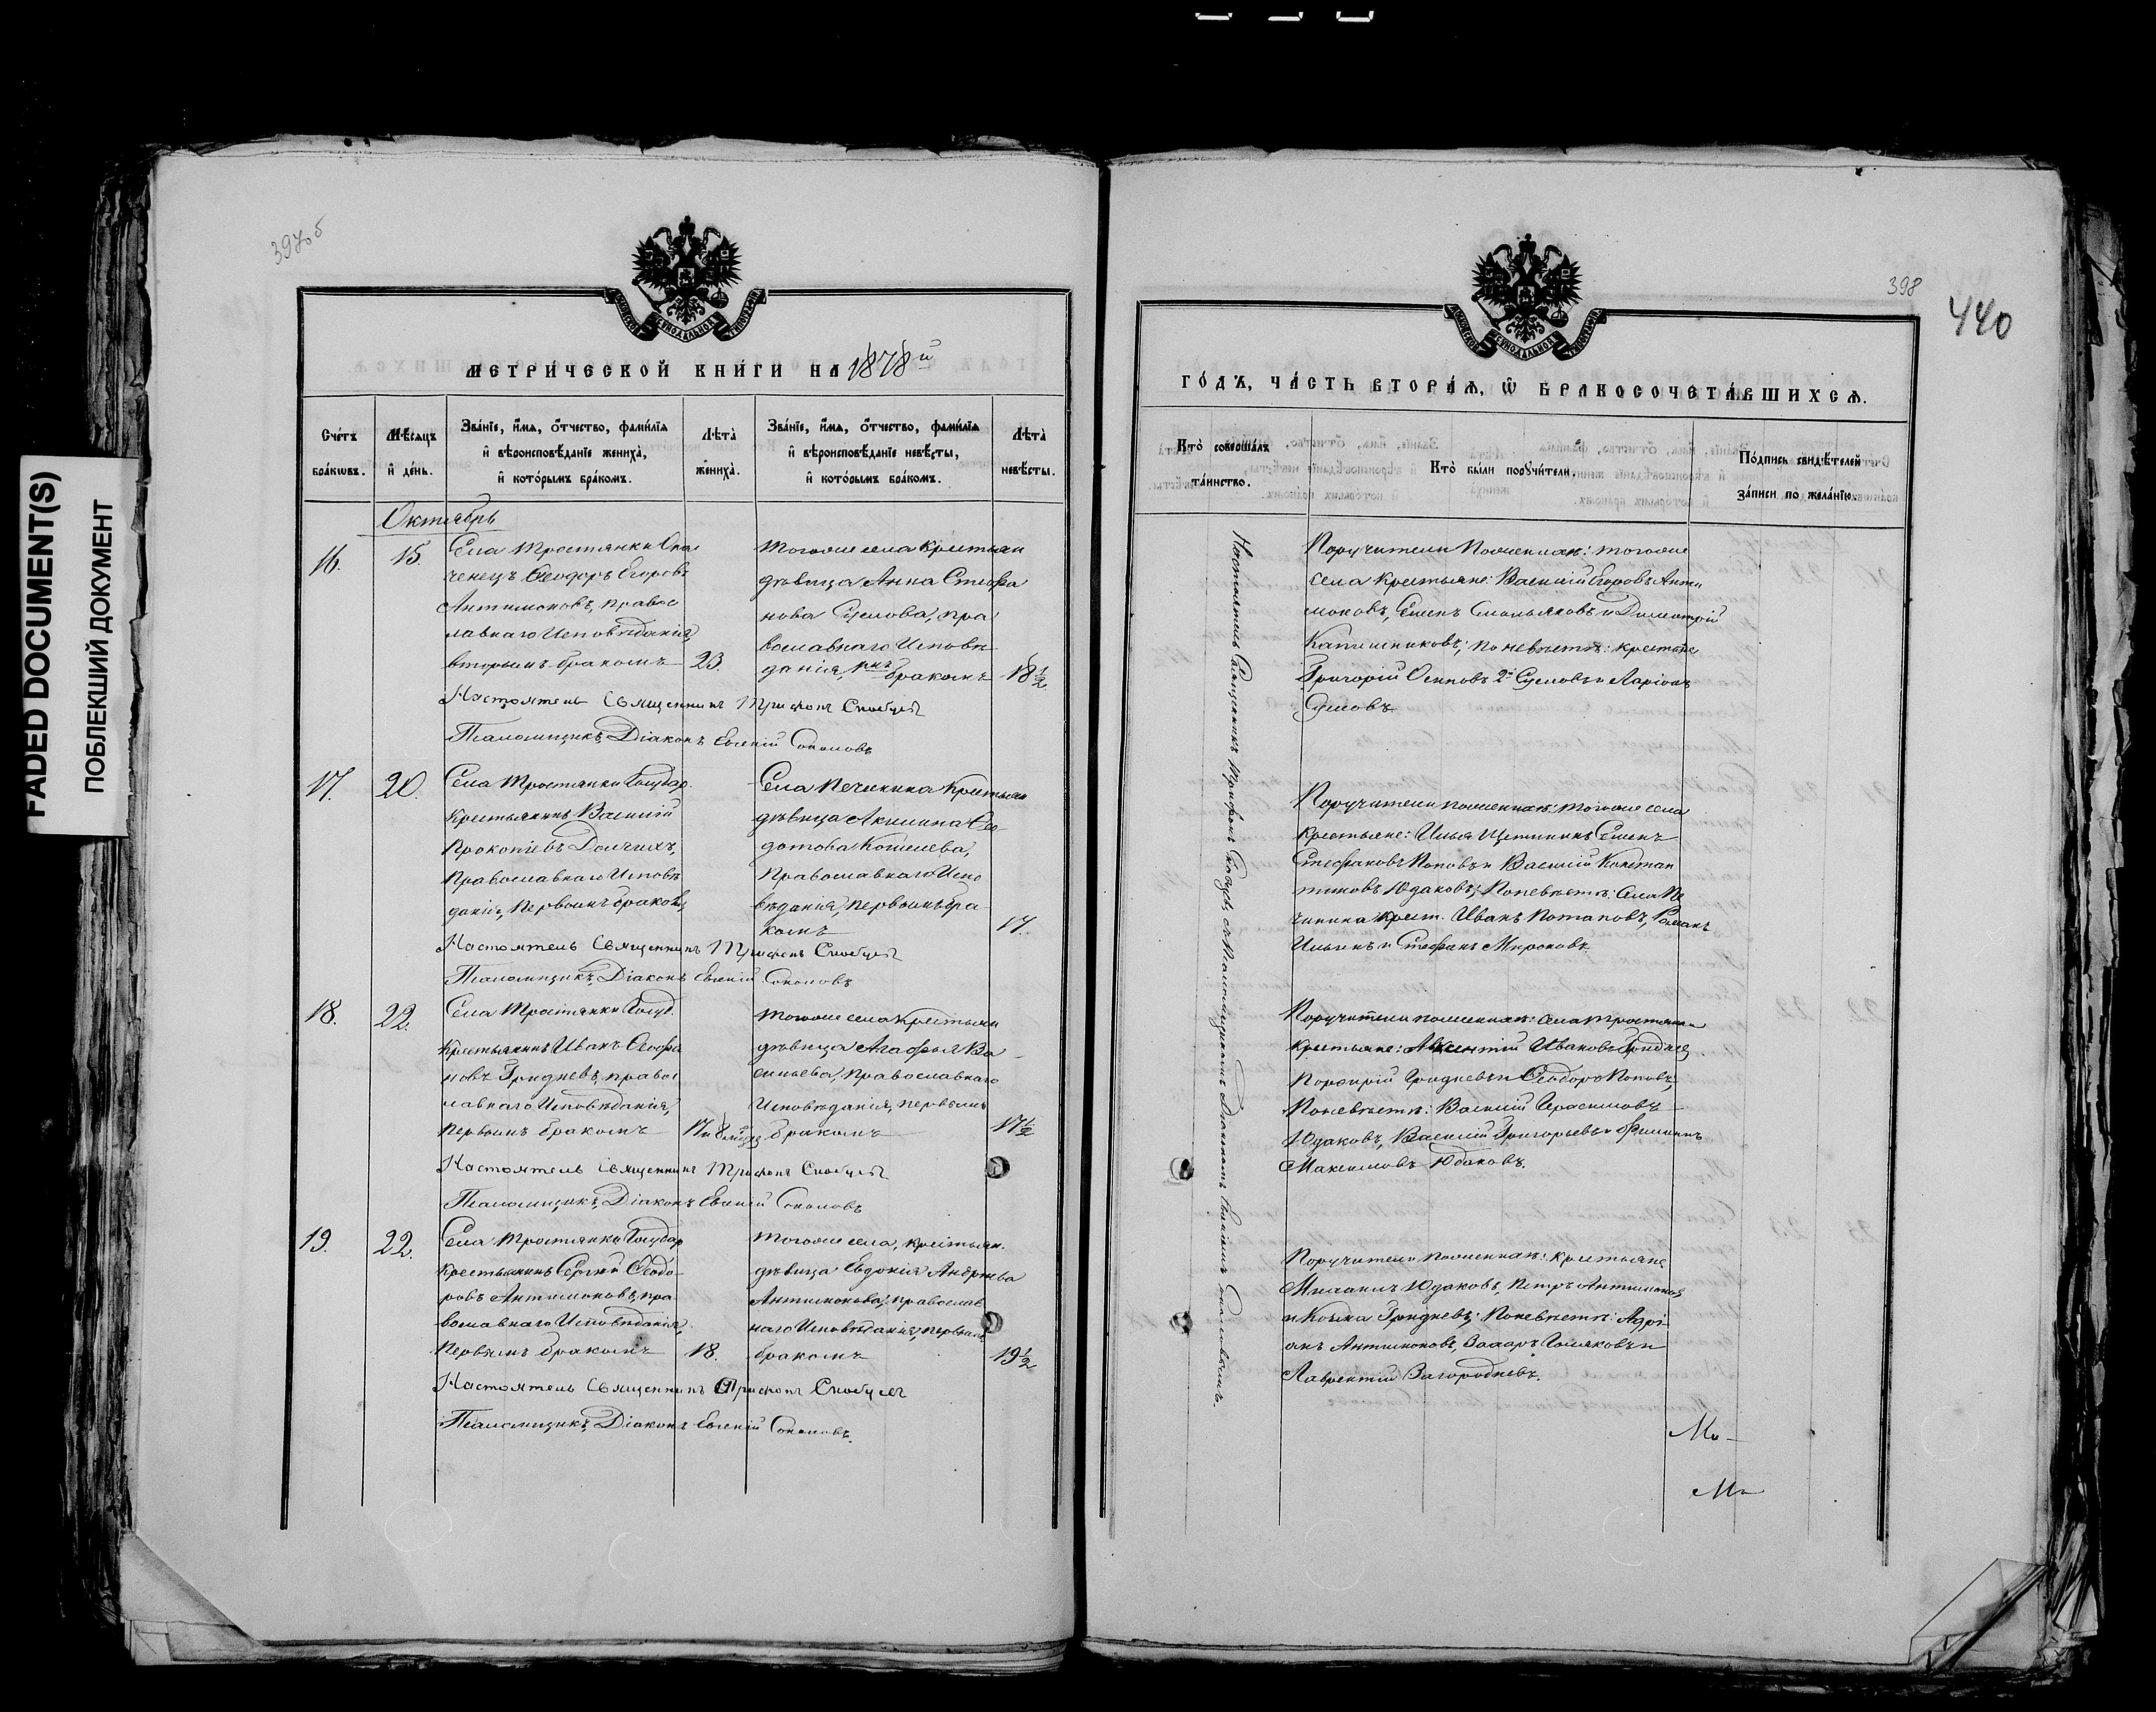 FADED DOCUMENT(S)
ПОБЛЕКШИЙ ДОКУМЕНТ
397об
МЕТРИЧЕСКОЙ КНИГИ НА 1878й
Счетъ браковъ.
Мѣсяцъ и день.
Званіе, имя, отчество, фамилія и вѣроисповѣданіе жениха, и которымъ бракомъ.
Лѣта жениха.
Званіе, имя, отчество, фамилія и вѣроисповѣданіе невѣсты, и которымъ бракомъ.
Лѣта невѣсты.
Октябрь
16.
15.
Села Тростянки Опол
ченецъ Ѳеодоръ Егоровъ
Антимоновъ, правос
лавнаго Исповѣданія,
вторымъ бракомъ
23.
тогоже села крестьян
дѣвица Анна Стефа
нова Суслова, пра
вославнаго Исповѣ
данія, бракомъ
18 1/2
Настоятель Священникъ Трифонъ Скобцевъ
Псаломщикъ, Діаконъ Евгеній Соколовъ
17.
20.
Села Тростянки Государ.
Крестьянинъ Василій
Прокопіевъ Долгихъ,
Православнаго Исповѣ
данія, первымъ бракомъ,
Села Печинина Крестьян
дѣвица Акилина Ѳе
дотова Кошелева,
Православнаго Испо
вѣданія, первымъ бра
комъ
17.
Настоятель Священникъ Трифонъ Скобцевъ
Псаломщикъ, Діаконъ Евгеній Соколовъ
18.
22.
Села Тростянки Госуд.
Крестьянинъ Иванъ Ѳеофа
новъ Гридневъ, правос
лавнаго Исповѣданія,
первымъ бракомъ
17 и 8
тогоже села крестьян
дѣвица Агафья Ва
сильева, православнаго
Исповѣданія, первымъ
бракомъ
17 1/2
Настоятель Священникъ Трифонъ Скобцевъ
Псаломщикъ, Діаконъ Евгеній Соколовъ
19.
22.
Села Тростянки Государ
крестьянинъ Сергій Ѳеодо-
ровъ Антимоновъ, пра
вославнаго Исповѣданія,
первымъ бракомъ
18.
тогоже села, крестьян.
дѣвица Евдокія Андреева
Антимонова, православ
наго Исповѣданія, первымъ
бракомъ
19 1/2
Настоятель Священникъ Трифонъ Скобцевъ
Псаломщикъ, Діаконъ Евгеній Соколовъ.
398
440
ГОДЪ, ЧАСТЬ ВТОРАЯ, Ѡ БРАКОСОЧЕТАВШИХСЯ.
Кто совершалъ таинство.
Кто были поручители.
Подпись свидѣтелей записи по желанію.
Настоятель Священникъ Трифонъ Скобцевъ съ Псаломщикомъ Діакономъ Евгеніемъ Соколовымъ.
Поручители По женихѣ: тогоже
села крестьяне: Василій Егоровъ Анти
моновъ, Семенъ Смольяковъ и Димитрій
Калашниковъ; по невѣстѣ: крестьяне
Григорій Осиповъ 2й Сусловъ и Ларіонъ
Сусловъ.
Поручители по женихѣ: тогоже села
крестьяне: Илья Щетининъ, Семенъ
Стефановъ Поповъ и Василій Констан
тиновъ Юдаковъ; По невѣстѣ: Села Пе
чинина крест. Иванъ Потаповъ, Романъ
Ильинъ и Стефанъ Мироновъ.
Поручители по женихѣ: села Тростянки
крестьяне: Авксентій Ивановъ Гриднев
Порфирій Гридневъ и Ѳеодоръ Поповъ,
По невѣстѣ: Василій Герасимовъ
Юдаковъ, Василій Григорьевъ и Филиппъ
Максимовъ Юдаковъ.
Поручители По женихѣ: крестьяне
Юдаковъ, Петръ Антимонов
и Козма Гридневъ; По невѣстѣ: Адрі-
анъ Антимоновъ, Захаръ и
Лаврентій Загородневъ.